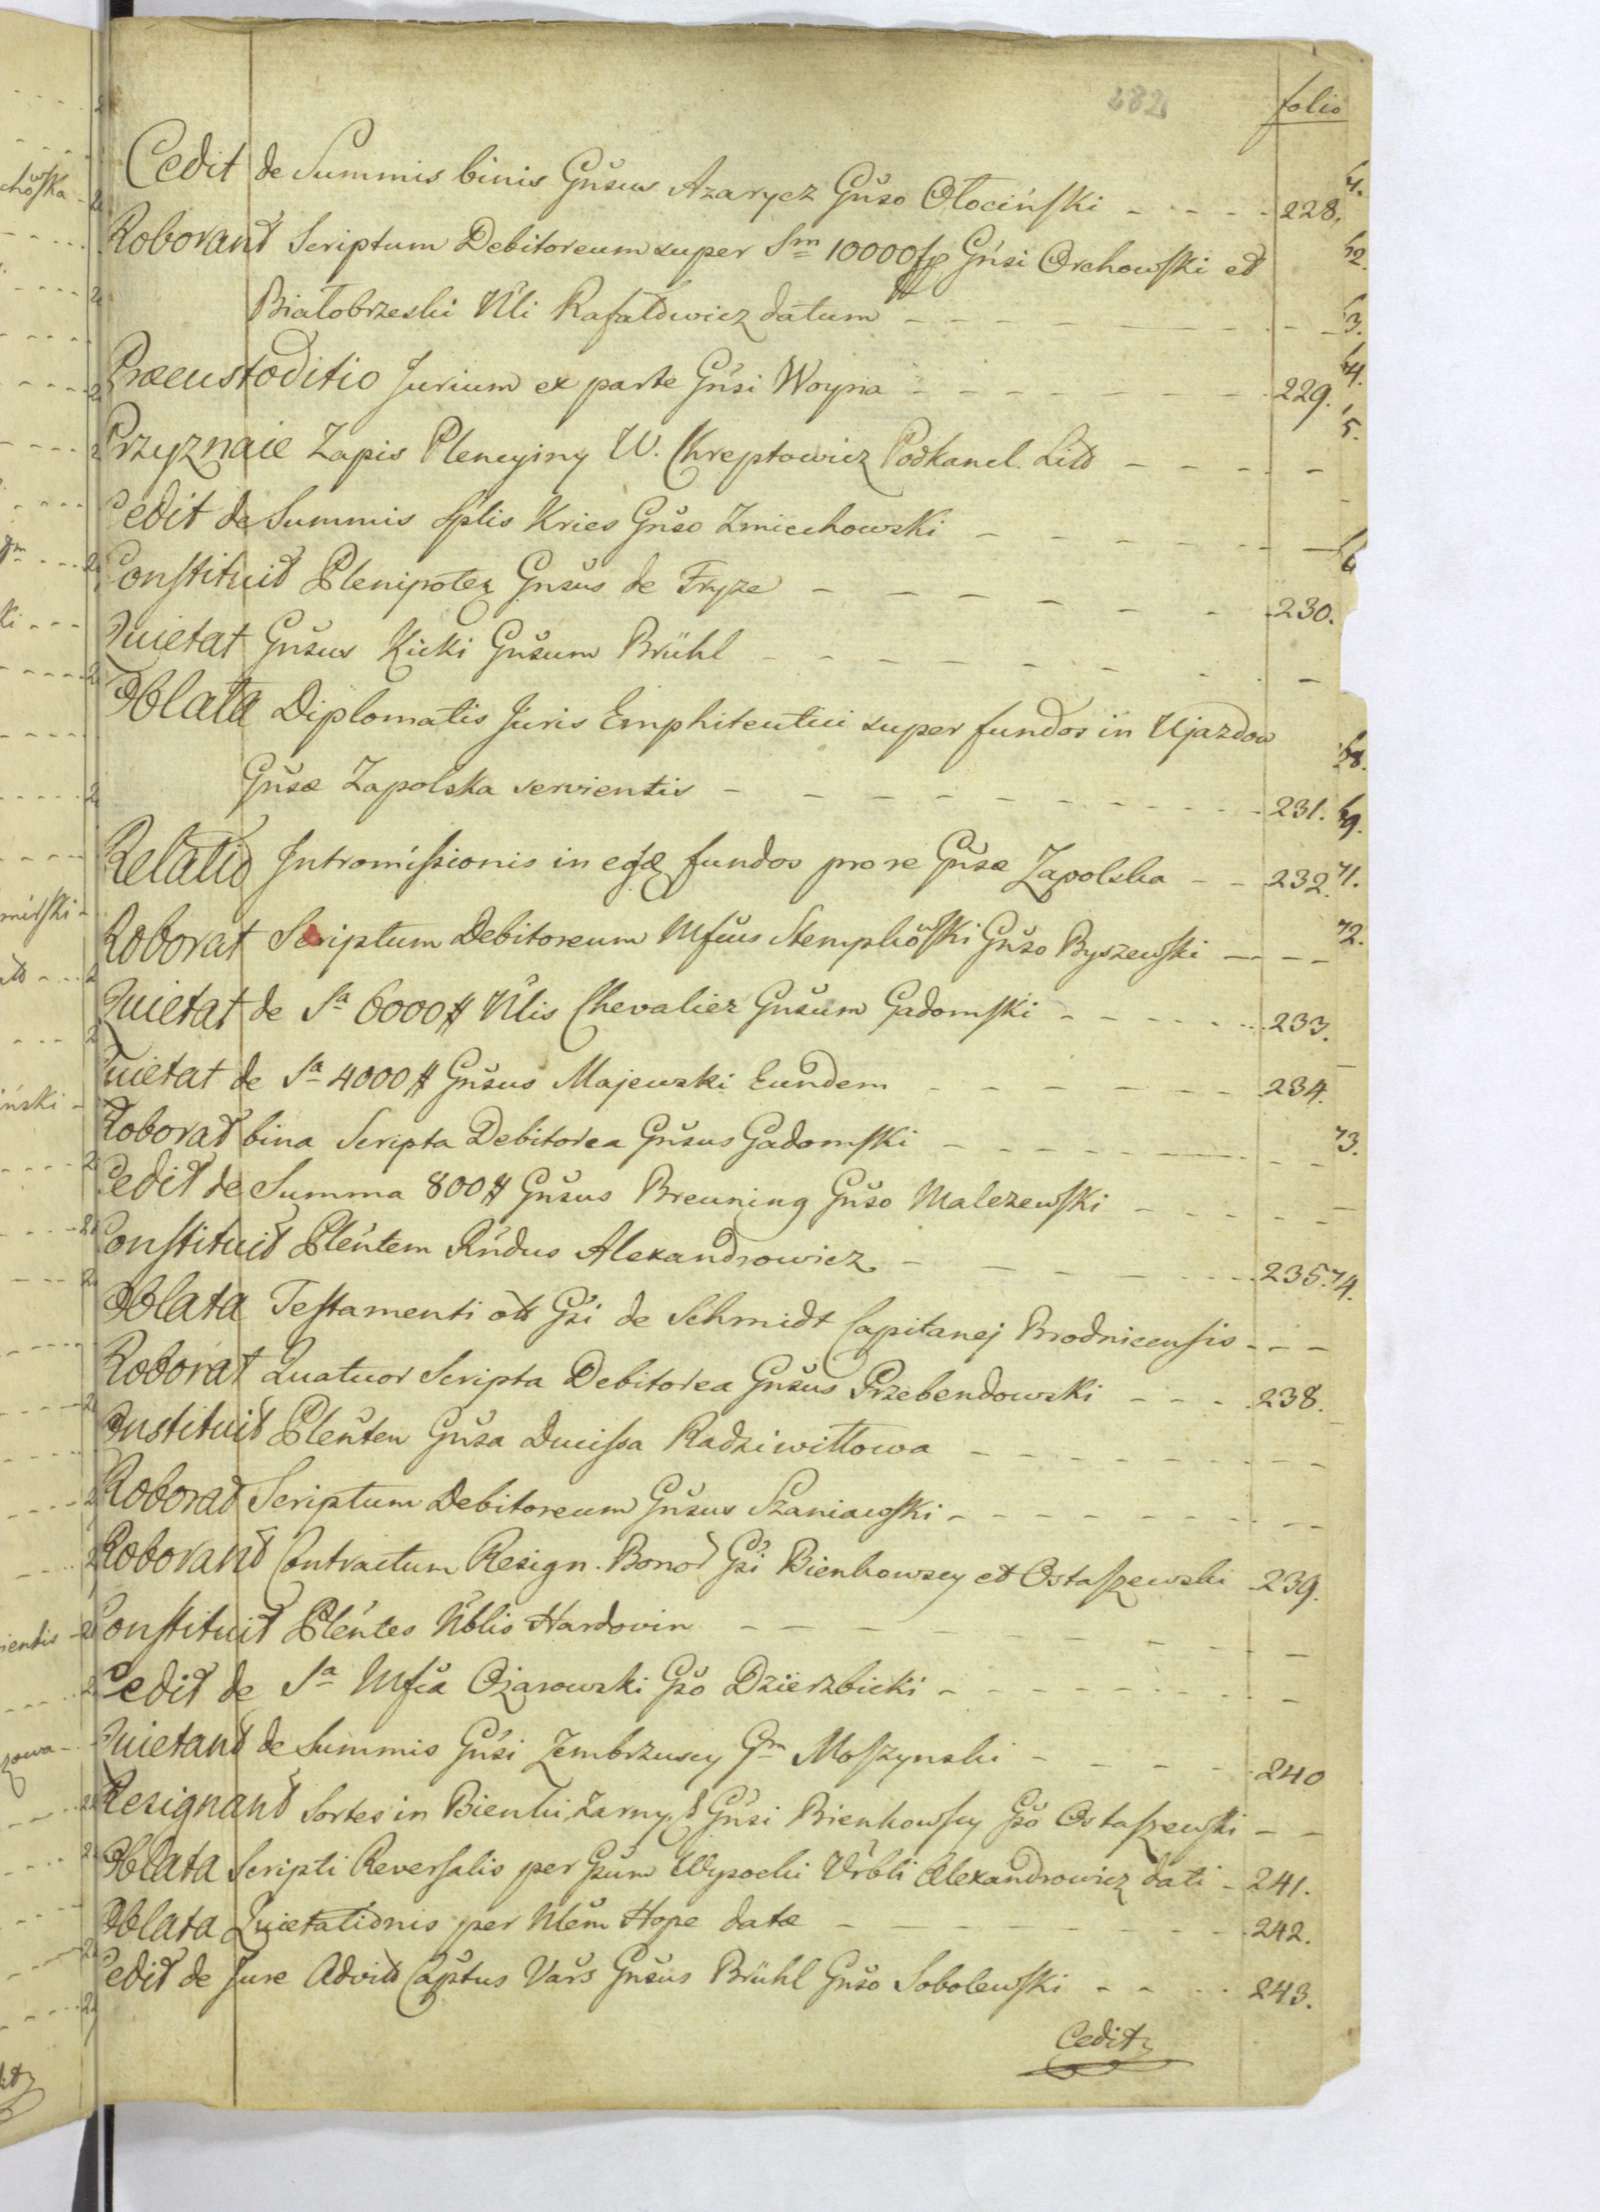 282
folio
Cedit de Summis binis Gnsus Azarycz Gnso Otociński - - - - 228.
Roborant Scriptum Debitoreum super Sm 10000 fp Gnsi Orchowski et
Białobrzeski Nli Rafałowicz datum - - - - - - -
Præcustoditio Jurium ex parte Gnsi Woyna - - - - - - 229.
Przyznaie Zapis Plencyiny W. Chreptowicz Podkancl. Litt - - - - -
Cedit de Summis Sptis Kries Gnso Zmiechowski - - - - - -
Constituit Plenipotez Gnsus de Fryze - - - - - - 230.
Quietat Gnsus Kicki Gnsum Brühl - - - - - - -
Oblata Diplomatis Juris Emphiteutici super fundos in Ujazdow
Gnsæ Zapolska servientis - - - - - - - 231.
Relatio Intromissionis in eosd fundos pro re Gnsæ Zapolska - - 232.
Roborat Scriptum Debitoreum Mfcus Stempkowski Gnso Byszewski - - -
Quietat de Sa 6000 # Nlis Chevalier Gnsum Gadomski - - - - - 233.
Quietat de Sa 4000 # Gnsus Majewski Eundem - - - - - - 234.
Roborat bina Scripta Debitorea Gnsus Gadomski - - - - - - -
Cedit de Summa 800 # Gnsus Breuning Gnso Malczewski - - - - -
Constituit Plentem Rndus Alexandrowicz - - - - - - 235.
Oblata Testamenti olt Gsi de Schmidt Capitanej Brodnicensis - - -
Roborat Quatuor Scripta Debitorea Gnsus Przebendowski - - - 238.
Instituit Plenten Gnsa Ducissa Radziwiłłowa - - - - - - -
Roborat Scriptum Debitoreum Gnsus Szaniawski - - - - - - - -
Roborant Contractum Resign. Bonor Gsi Bienkowscy et Ostaszewski 239.
Constituit Plentes Nblis Hardovin - - - - - - - -
Cedit de Sa Mfca Ożarowski Gso Dzierzbicki - - - - - - -
Quietant de Summis Gnsi Zembrzuscy Gm Moszynski - - - - 240
Resignant Sortes in Bienki Zarny Gnsi Bienkowscy Gso Ostaszewski - -
Oblata Scripti Reversalis per Gsum Wysocki Urbli Alexandrowicz dati - 241.
Oblata Quietationis per Nlem Hope datæ - - - - - 242.
Cedit de Jure Advit Captus Vars Gnsus Brühl Gnso Sobolewski - - - 243.
Cedit